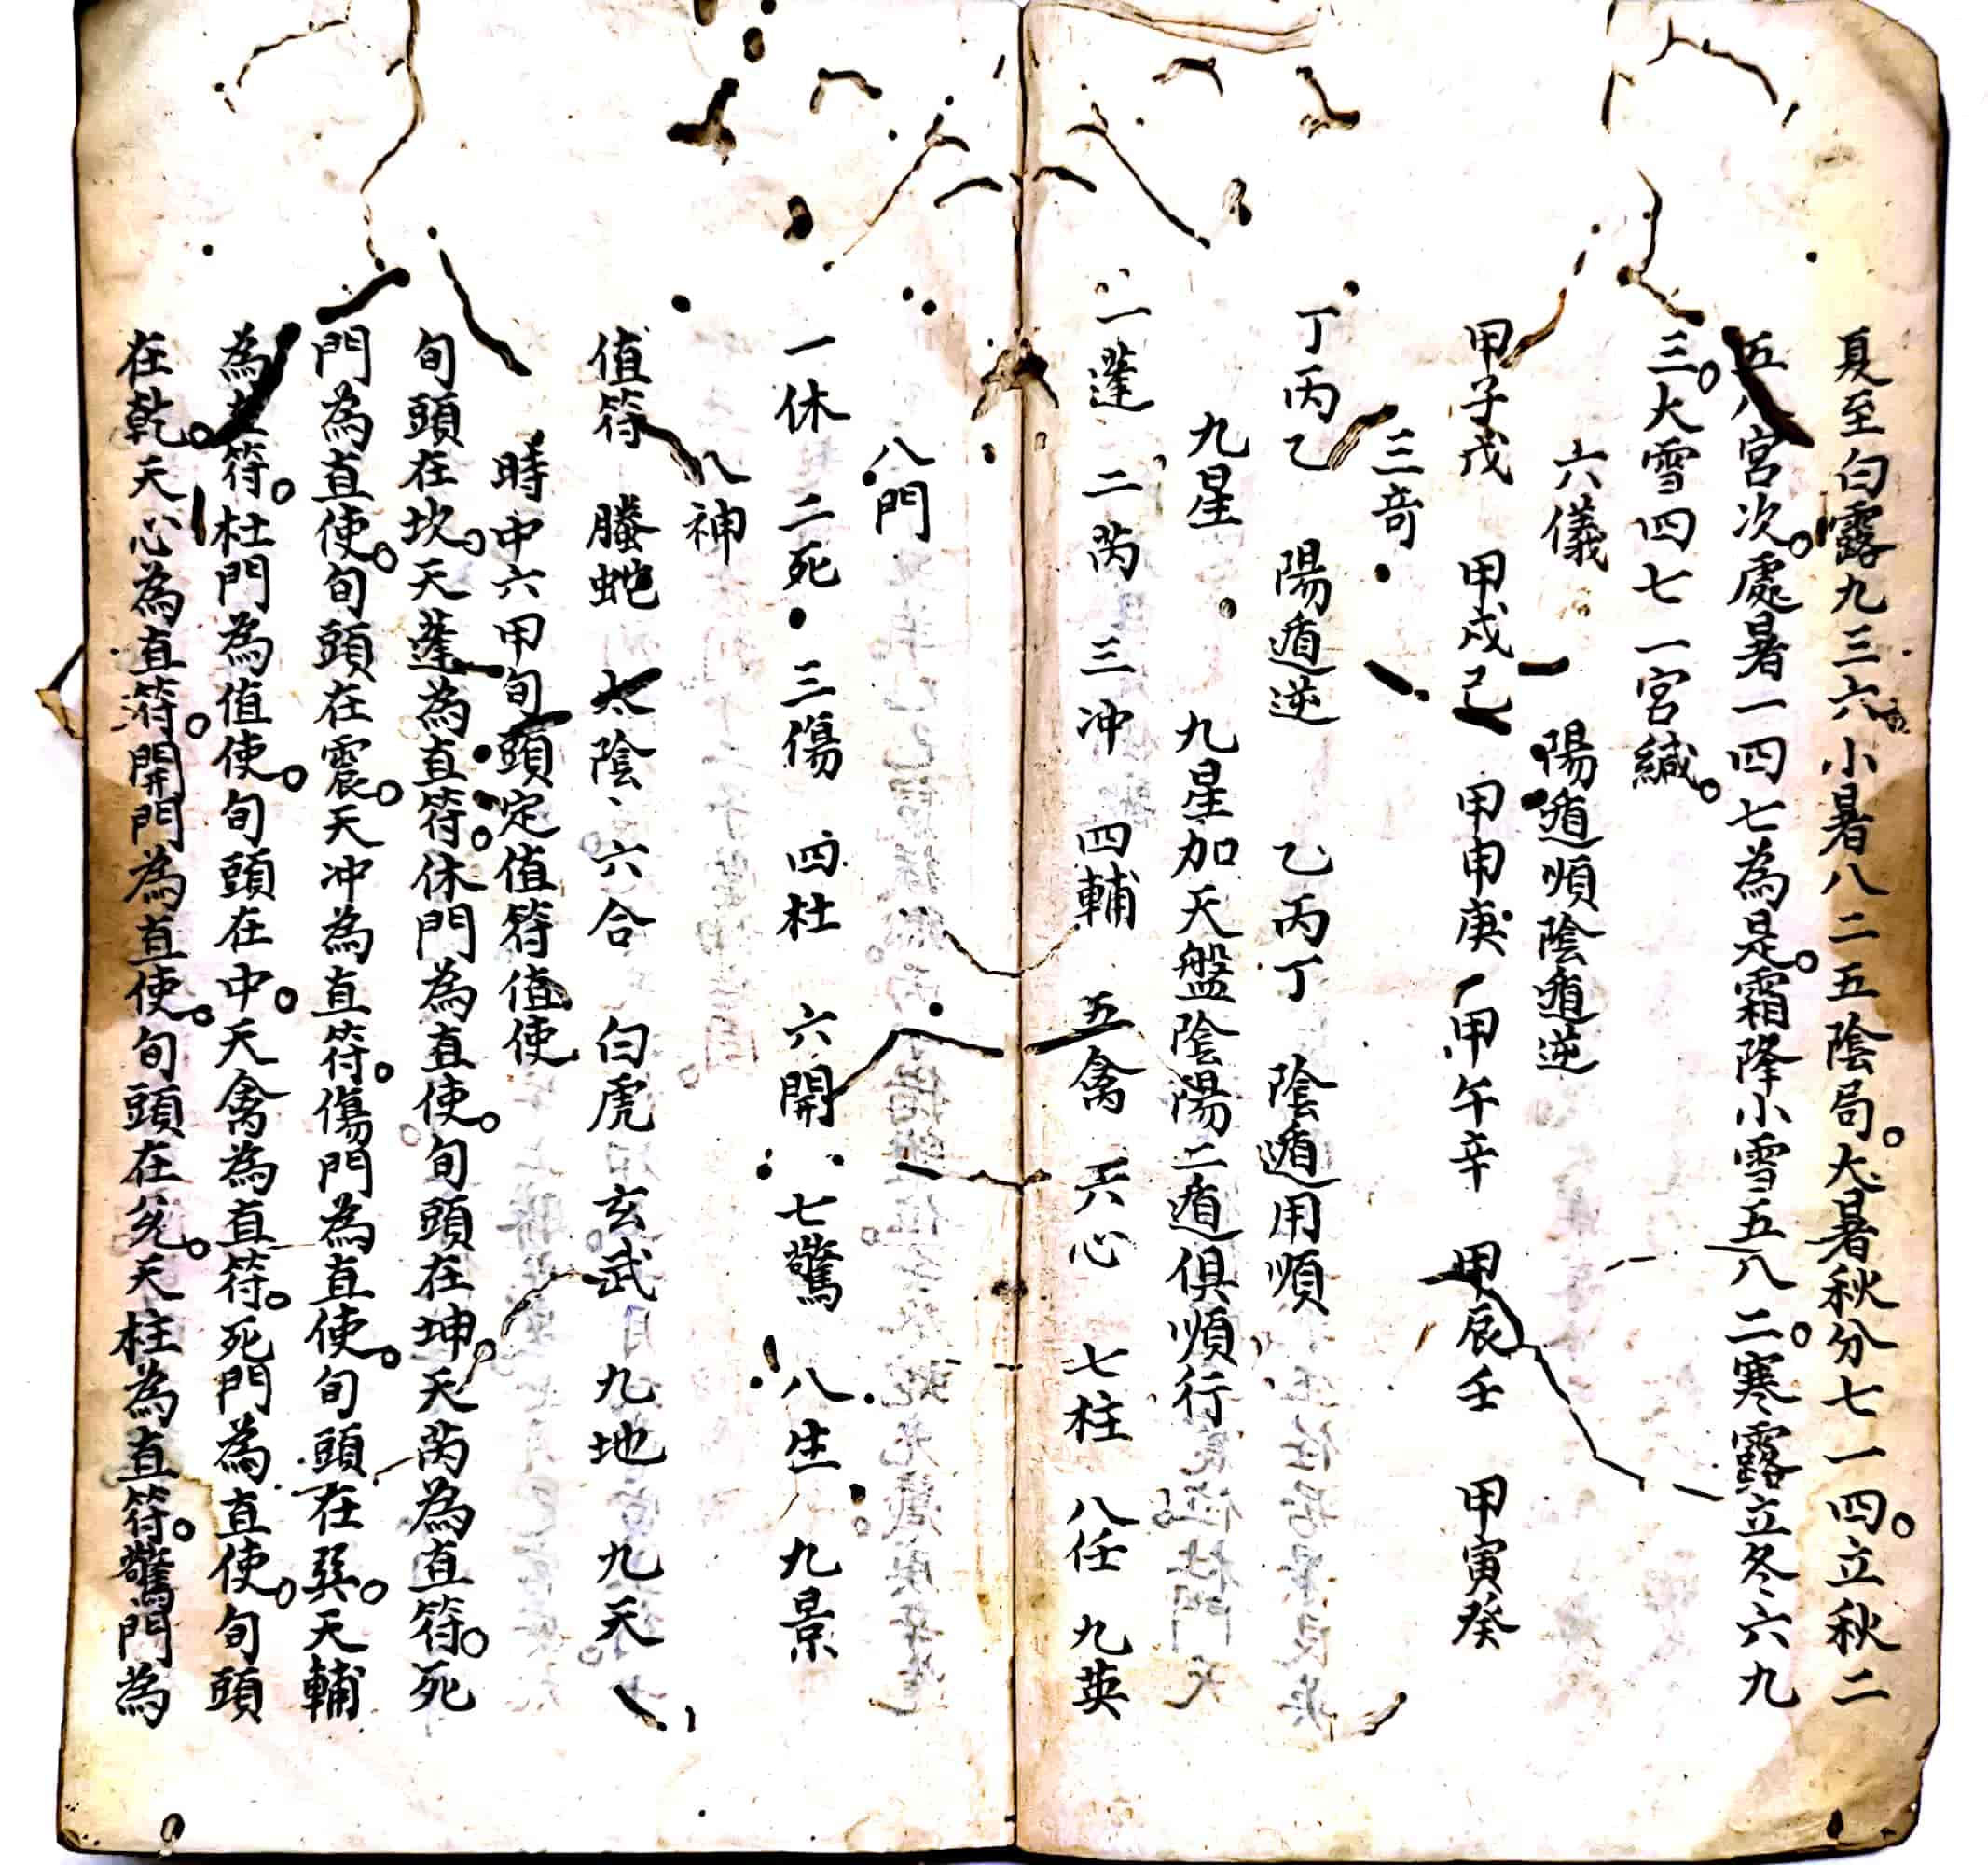 夏至白露九三六小暑八二五陰局。大暑秋分七一四。立秋二
五八宮次。處暑一四七為是。霜降小雪五八二。寒露立冬六九
三。大雪四七一宮緘。
六儀　陽遁順陰遁逆
甲子戊　甲戌己　甲申庚　甲午辛　甲辰壬　甲寅癸
三奇
丁丙乙　陽遁逆　乙丙丁　陰遁用順
九星　九星加天盤陰陽二遁俱順行
一蓬　二芮　三冲　四輔　五禽　六心　七柱　八任　九英
八門
一休　二死　三傷　四杜　六開　七驚　八生　九景
八神
值符　螣蛇　太陰　六合　白虎　玄武　九地　九天
時中六甲旬頭定值符值使
旬頭在坎。天蓬為直符。休門為直使。旬頭在坤。天芮為直符。死
門為直使。旬頭在震。天冲為直符。傷門為直使。旬頭在巽。天輔
為直符。杜門為值使。旬頭在中。天禽為直符。死門為直使。旬頭
在乾。天心為直符。開門為直使。旬頭在兌。天柱為直符。驚門為